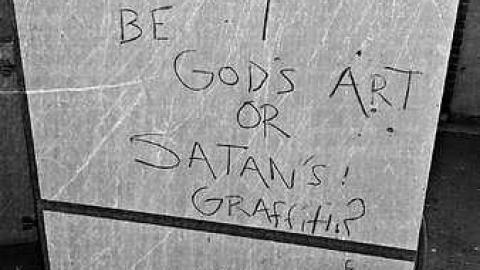 BE I
GOD'S ART
OR
SATAN'S!
GRAffiti?